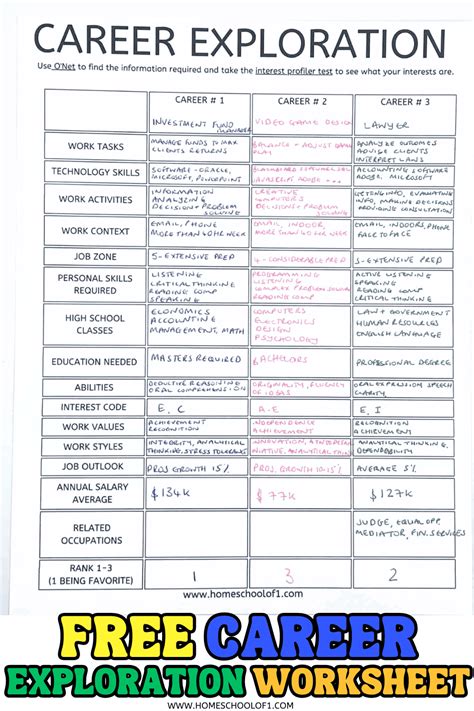 CAREER EXPLORATION
Use O'Net to find the information required and take the interest profiler test to see what your interests are.
CAREER # 1 CAREER # 2 CAREER # 3
INVESTMENT FUND MANAGER VIDEO GAME DESIGN LAWYER
WORK TASKS
MANAGE FUNDS TO MAX
CLIENTS RETURNS
BALANCE + ADJUST GAME
PLAY
ANALYZE OUTCOMES
ADVISE CLIENTS
INTERPRET LAWS
TECHNOLOGY SKILLS
SOFTWARE - ORACLE,
MICROSOFT, POWERPOINT
ACCOUNTING SOFTWARE
ADOBE, MICROSOFT
WORK ACTIVITIES
INFORMATION
ANALYZING
DECISION + PROBLEM
SOLVING
CREATIVE
COMPUTERS
DECISIONS + PROBLEM
SOLVING
LISTENING INFO, EVALUATING
INFO, MAKING DECISIONS
PROVIDING CONSULTATION
WORK CONTEXT
EMAIL, PHONE
MORE THAN 40 HR WEEK
EMAIL, INDOOR,
MORE THAN 40 HR WEEK
EMAIL, INDOORS, PHONE
FACE TO FACE
JOB ZONE
5 - EXTENSIVE PREP 4 - CONSIDERABLE PREP 5 - EXTENSIVE PREP
PERSONAL SKILLS
REQUIRED
LISTENING
CRITICAL THINKING
READING COMP
SPEAKING
PROGRAMMING
LISTENING
COMPLEX PROBLEM SOLVING
READING COMP
ACTIVE LISTENING
SPEAKING
READING COMP
CRITICAL THINKING
HIGH SCHOOL
CLASSES
ECONOMICS
ACCOUNTING
MANAGEMENT, MATH
COMPUTERS
ELECTRONICS
DESIGN
PSYCHOLOGY
LAW + GOVERNMENT
HUMAN RESOURCES
ENGLISH LANGUAGE
EDUCATION NEEDED
MASTERS REQUIRED BACHELORS PROFESSIONAL DEGREE
ABILITIES
DEDUCTIVE REASONING
ORAL COMPREHENSION
ORIGINALITY, FLUENCY
OF IDEAS
ORAL EXPRESSION, SPEECH
CLARITY
INTEREST CODE
E, C A - E E, I
WORK VALUES
ACHIEVEMENT
RECOGNITION
INDEPENDENCE
ACHIEVEMENT
RECOGNITION
ACHIEVEMENT
WORK STYLES
INTEGRITY, ANALYTICAL
THINKING, STRESS TOLERANCE
INNOVATION,
INITIATIVE, ANALYTICAL
ANALYTICAL THINKING,
DEPENDABILITY
JOB OUTLOOK
PROJ. GROWTH 15% PROJ. GROWTH 10-15% AVERAGE 5%
ANNUAL SALARY
AVERAGE
$134K $77K $127K
RELATED
OCCUPATIONS
JUDGE, EQUAL OPP,
MEDIATOR, FIN. SERVICES
RANK 1-3
(1 BEING FAVORITE)
1 3 2
www.homeschoolof1.com
FREE CAREER
EXPLORATION WORKSHEET
WWW.HOMESCHOOLOF1.COM